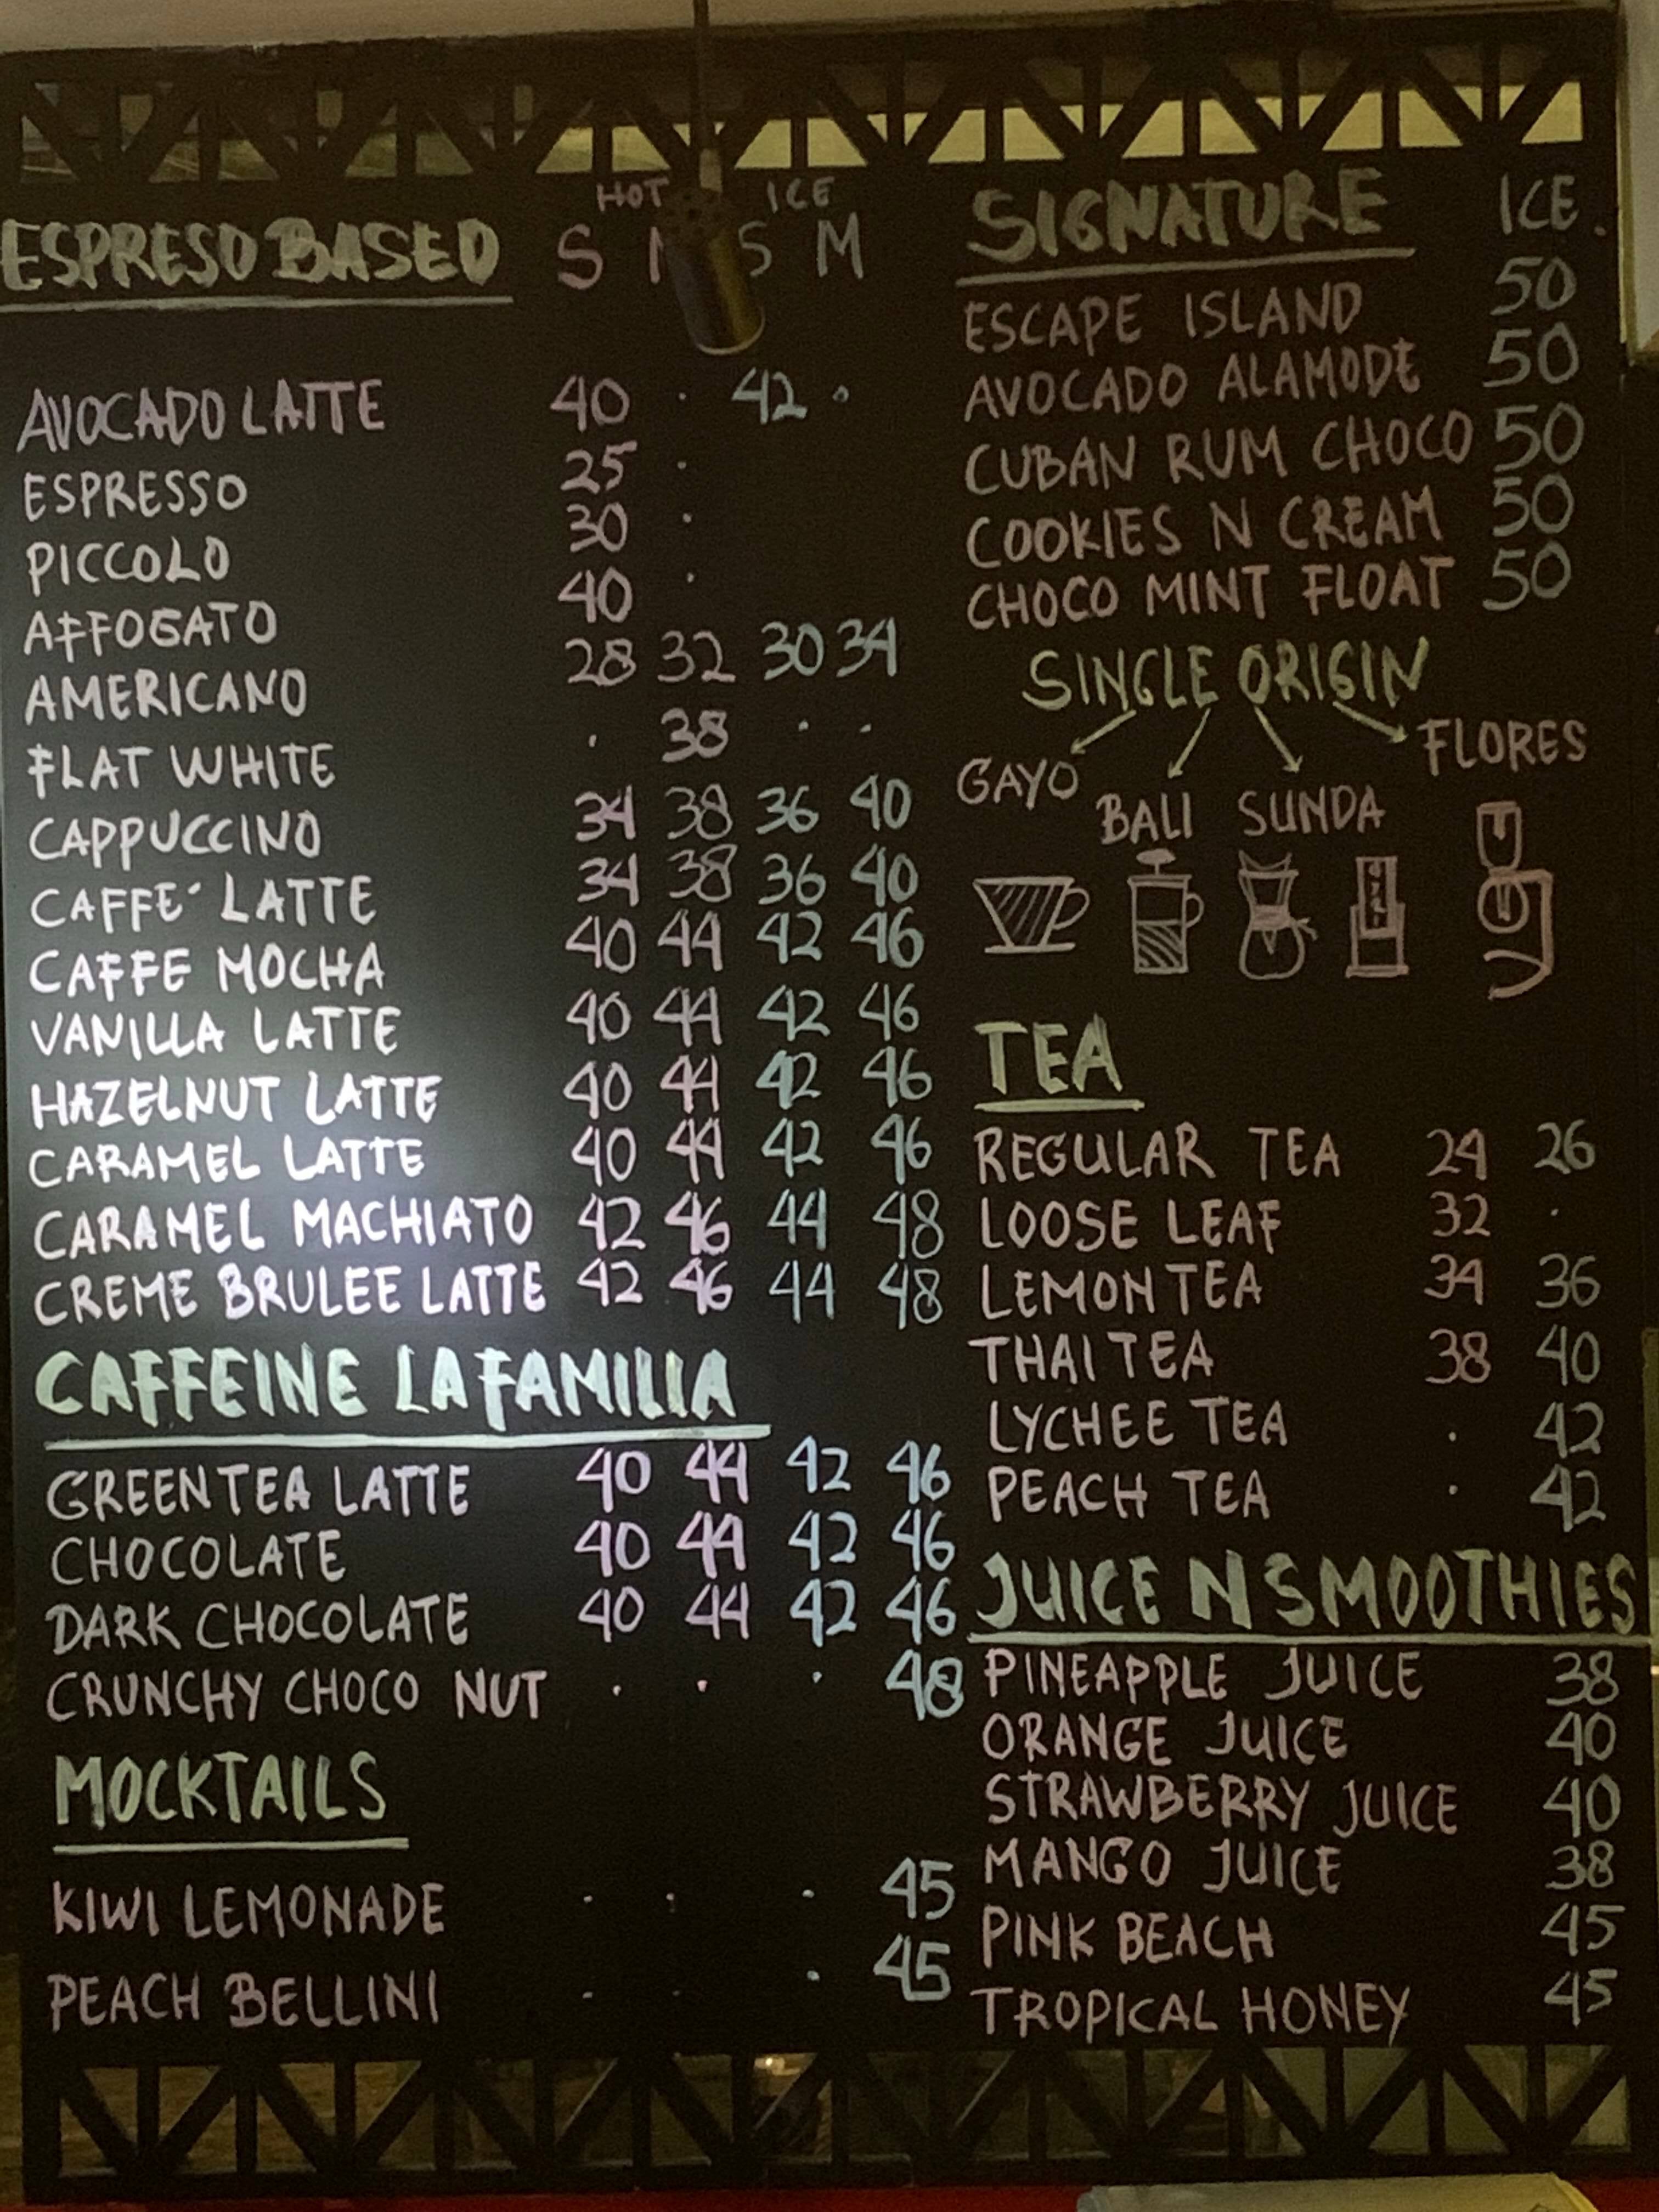 HOT ICE
ESPRESO BASED S M S M
AVOCADO LATTE 40 · 42 ·
ESPRESSO 25 ·
PICCOLO 30 ·
AFFOGATO 40 ·
AMERICANO 28 32 30 34
FLAT WHITE · 38 · ·
CAPPUCCINO 34 38 36 40
CAFFE´ LATTE 34 38 36 40
CAFFE MOCHA 40 44 42 46
VANILLA LATTE 40 44 42 46
HAZELNUT LATTE 40 44 42 46
CARAMEL LATTE 40 44 42 46
CARAMEL MACHIATO 42 46 44 48
CREME BRULEE LATTE 42 46 44 48
CAFFEINE LA FAMILIA
GREEN TEA LATTE 40 44 42 46
CHOCOLATE 40 44 42 46
DARK CHOCOLATE 40 44 42 46
CRUNCHY CHOCO NUT · · · 48
MOCKTAILS
KIWI LEMONADE · · · 45
PEACH BELLINI · · · 45
SIGNATURE ICE.
ESCAPE ISLAND 50
AVOCADO ALAMODE 50
CUBAN RUM CHOCO 50
COOKIES N CREAM 50
CHOCO MINT FLOAT 50
SINGLE ORIGIN
GAYO BALI SUNDA FLORES
TEA
REGULAR TEA 24 26
LOOSE LEAF 32 ·
LEMON TEA 34 36
THAI TEA 38 40
LYCHEE TEA · 42
PEACH TEA · 42
JUICE N SMOOTHIES
PINEAPPLE JUICE 38
ORANGE JUICE 40
STRAWBERRY JUICE 40
MANGO JUICE 38
PINK BEACH 45
TROPICAL HONEY 45